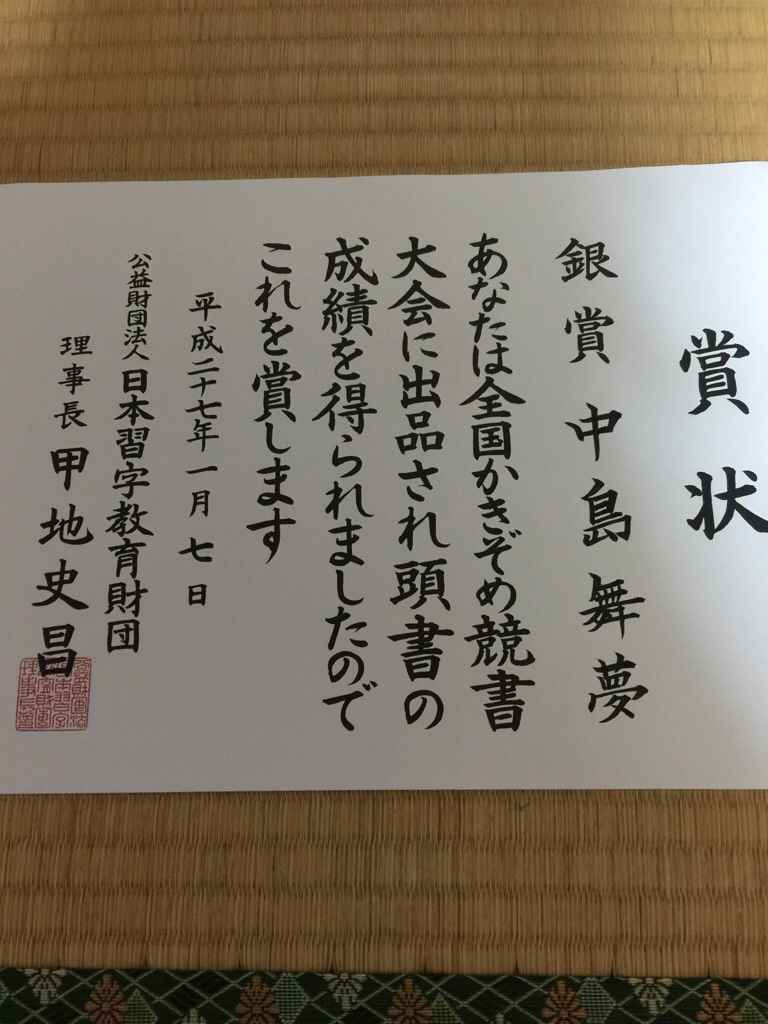 賞状
銀賞 中島舞夢
あなたは全国かきぞめ競書
大会に出品され頭書の
成績を得られましたので
これを賞します
平成二十七年一月七日
公益財団法人 日本習字教育財団
理事長 甲地史昌